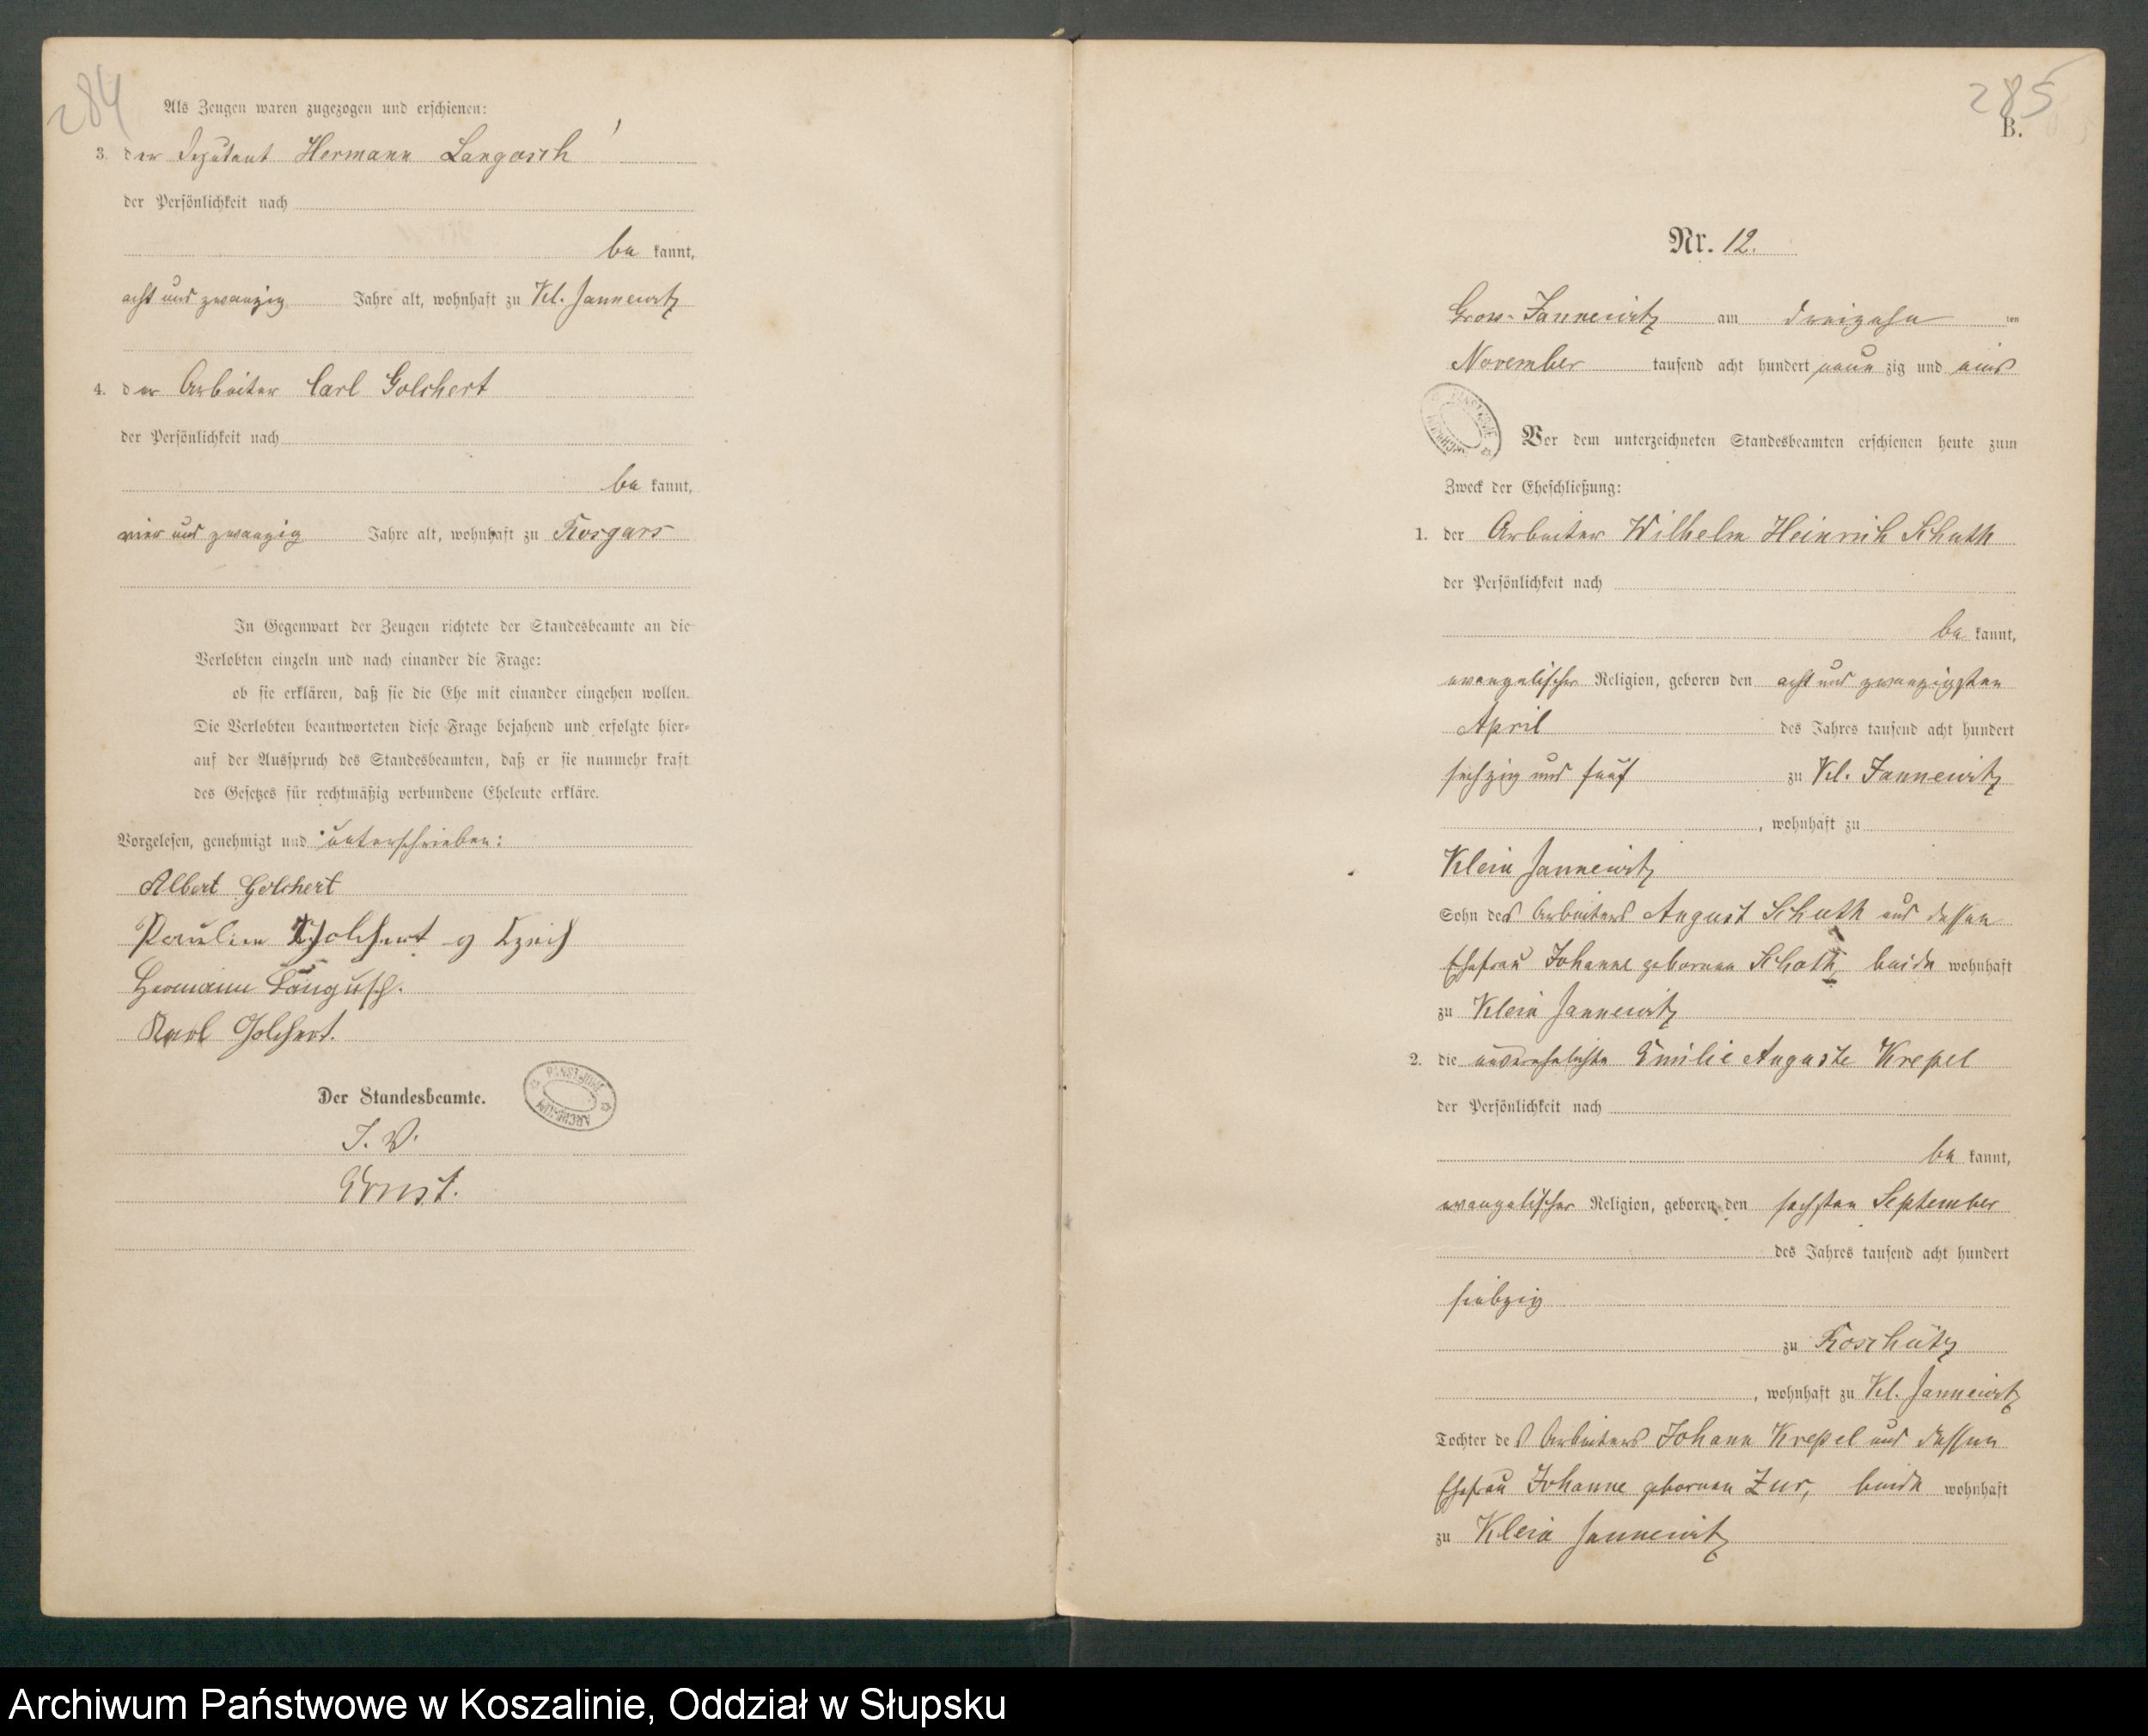 284
Als Zeugen waren zugezogen und erschienen:
3. der Deputant Hermann Langosch
der Persönlichkeit nach
be kannt,
acht und zwanzig Jahre alt, wohnhaft zu Kl. Jannewitz
4. der Arbeiter Carl Golchert
der Persönlichkeit nach
be kannt,
vier und zwanzig Jahre alt, wohnhaft zu Rosgars
In Gegenwart der Zeugen richtete der Standesbeamte an die
Verlobten einzeln und nach einander die Frage:
ob sie erklären, daß sie die Ehe mit einander eingehen wollen.
Die Verlobten beantworteten diese Frage bejahend und erfolgte hier-
auf der Ausspruch des Standesbeamten, daß er sie nunmehr kraft
des Gesetzes für rechtmäßig verbundene Eheleute erkläre.
Vorgelesen, genehmigt und unterschrieben:
Albert Golchert
Pauline Golchert g
Hermann Langosch.
Karl Golchert.
Der Standesbeamte.
J. V.
Ernst.
285
B.
Nr. 12.
Gross-Jannewitz am dreizehn ten
November tausend acht hundert neun zig und eins
Vor dem unterzeichneten Standesbeamten erschienen heute zum
Zweck der Eheschließung:
1. der Arbeiter Wilhelm Heinrich Schuth
der Persönlichkeit nach
be kannt,
evangelischer Religion, geboren den acht und zwanzigsten
April des Jahres tausend acht hundert
sechzig und fünf zu Kl. Jannewitz
, wohnhaft zu
Klein Jannewitz
Sohn des Arbeiters August Schuth und dessen
Ehefrau Johanne geborenen beide wohnhaft
zu Klein Jannewitz
2. die unverehelichte Emilie Auguste Krepel
der Persönlichkeit nach
be kannt,
evangelischer Religion, geboren den sechsten September
des Jahres tausend acht hundert
siebzig
zu Roschütz
, wohnhaft zu Kl. Jannewitz
Tochter des Arbeiters Johann Krepel und dessen
Ehefrau Johanne geborenen Zur, beide wohnhaft
zu Klein Jannewitz
Archiwum Państwowe w Koszalinie, Oddział w Słupsku